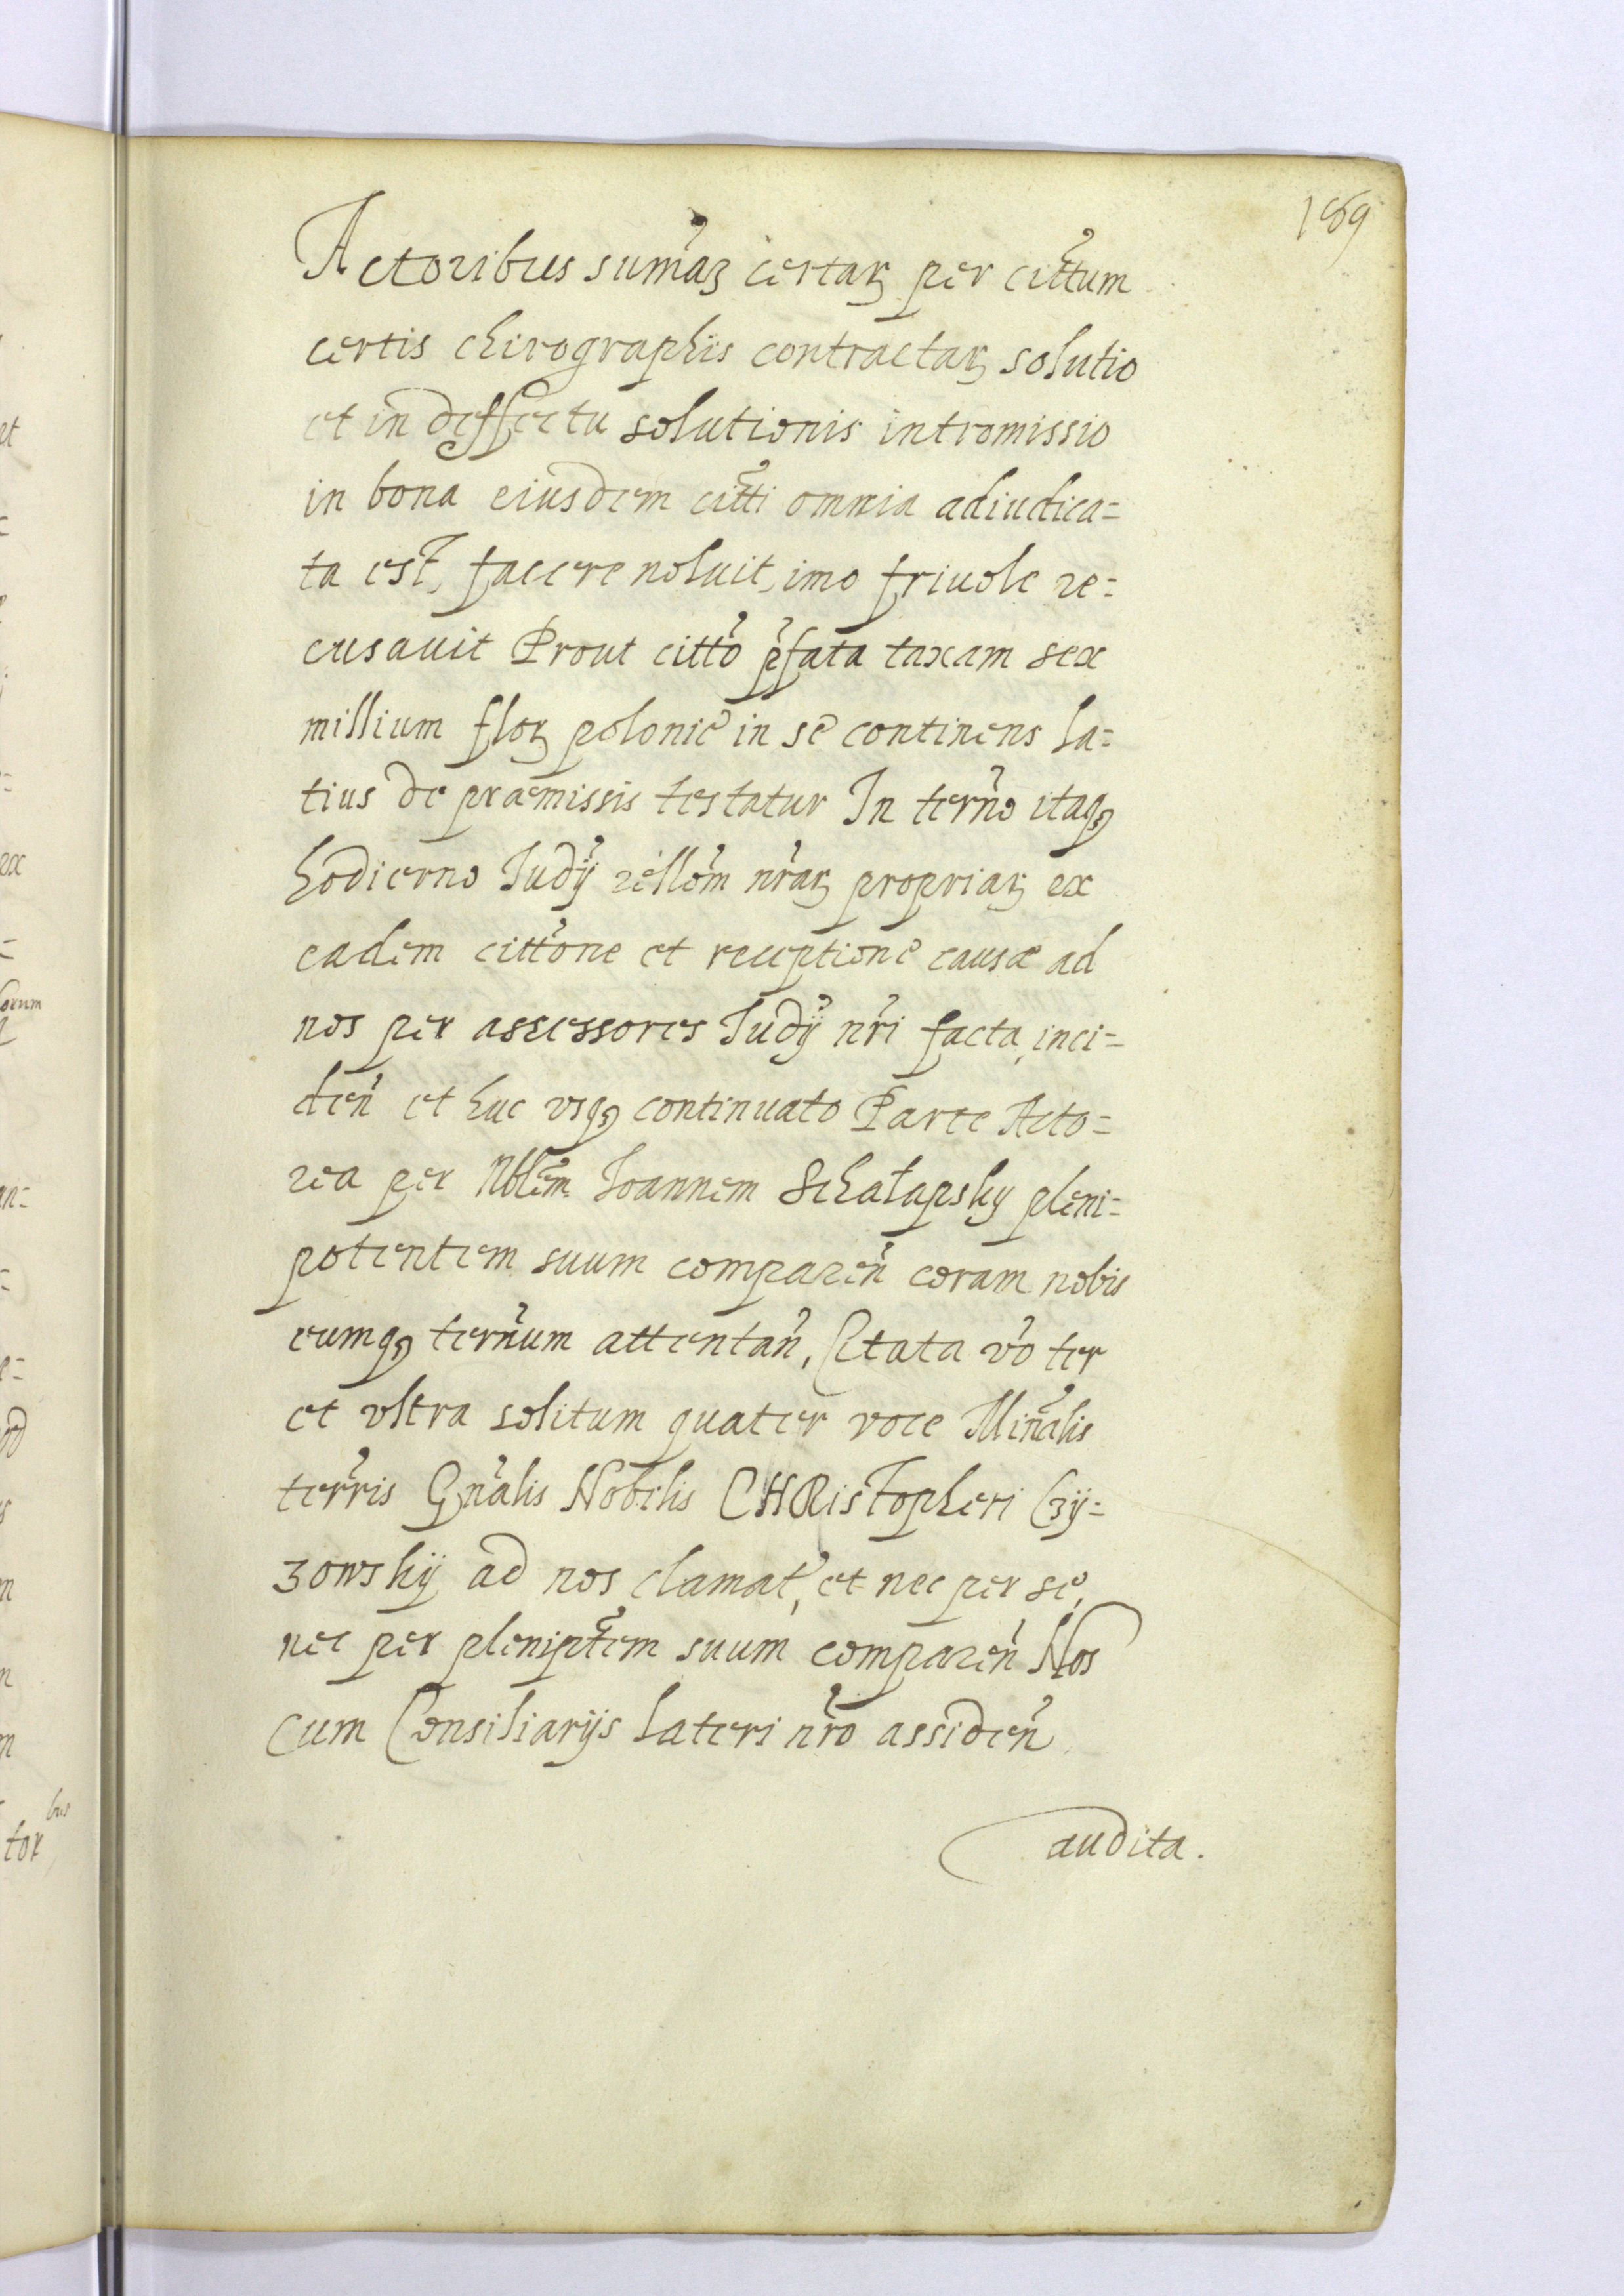 189
Actoribus sum̃aȝ certarꝫ per citt̃um
certis chirographis contractarꝫ solutio
et in deffectu solutionis intromissio
in bona eiusdem citt̃i omnia adiudica=
ta est, facere noluit, imo friuole re=
cusauit Prout citt̃o p̃fata taxam sex
millium florꝫ polonic̃ in se continens la=
tius de præmissis testatur In term̃o itaqꝫ
hodierno Judỹ rẽllom̃ nr̃arꝫ propriarꝫ ex
eadem citt̃one et receptione causæ ad
nos per assessores Judỹ nr̃i facta, inci=
den̄ et huc vsqꝫ continuato Parte Acto=
rea per Nbl̃em Joannem Schałapsky pleni=
potentem suum comparen̄ coram nobis
eumqꝫ term̃um attentan̄, Citata vo̊ ter
et vltra solitum quater voce Min̄alis
terr̃is Gn̄alis Nobilis CHRisTopheri Czÿ=
zowskÿ ad nos clamat̃, et nec per se,
nec per plenipt̃em suum comparen̄ Nos
Cum Consiliarijs lateri nr̃o assiden̄
audita.